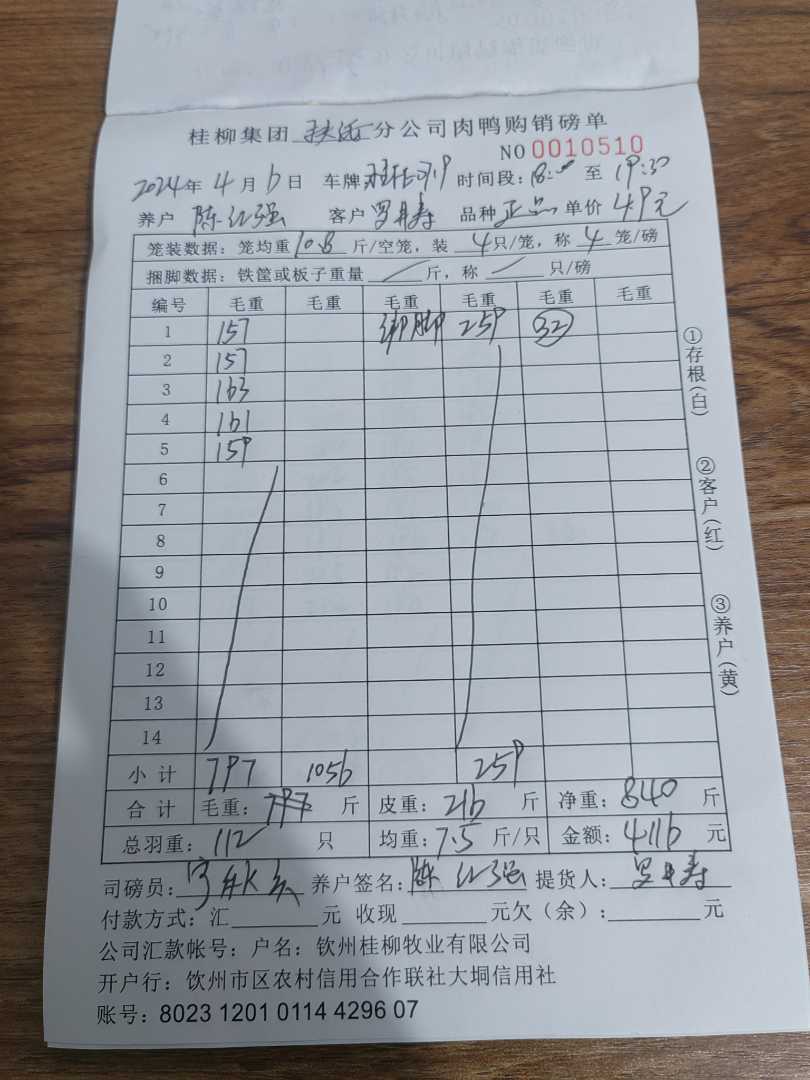 桂柳集团 分公司肉鸭购销磅单
NO 0010510
2024年 4月 6日 车牌 时间段: 18:00 至 19:30
养户 陈江强 客户 罗井寿 品种 正品 单价 4.9元
笼装数据: 笼均重 10.8 斤/空笼, 装 4 只/笼, 称 4 笼/磅
捆脚数据: 铁筐或板子重量 / 斤, 称 / 只/磅
编号 毛重 毛重 毛重 毛重 毛重 毛重
1 157 绑脚 259 32
2 157
3 163
4 161
5 159
6
7
8
9
10
11
12
13
14
小计 797 1056 259
合计 毛重: 797 斤 皮重: 216 斤 净重: 840 斤
总羽重: 112 只 均重: 7.5 斤/只 金额: 4116 元
司磅员: 养户签名: 陈江强 提货人: 罗井寿
付款方式: 汇 元 收现 元欠(余): 元
公司汇款帐号: 户名: 钦州桂柳牧业有限公司
开户行: 钦州市区农村信用合作联社大垌信用社
账号: 8023 1201 0114 4296 07
①存根(白)
②客户(红)
③养户(黄)